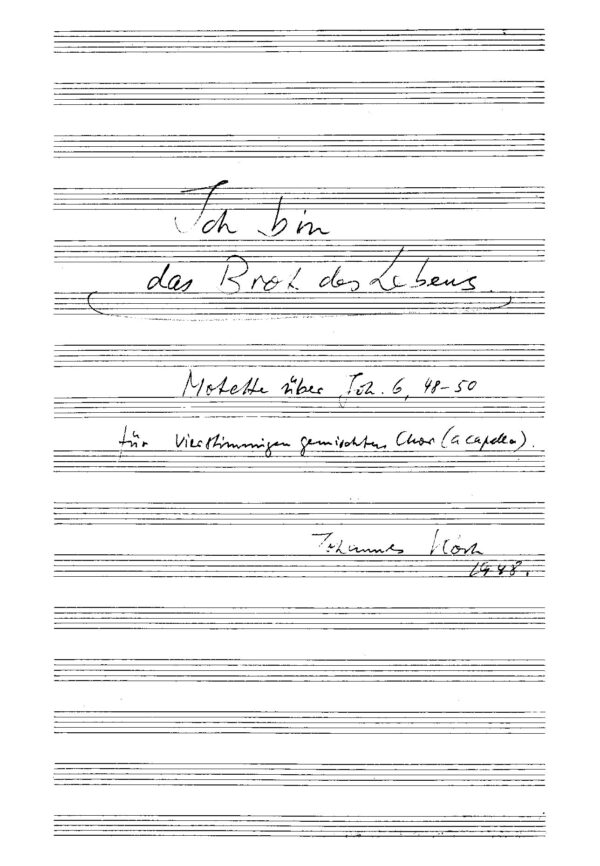 Ich bin
das Brot des Lebens.
Motette über Joh. 6, 48-50
für vierstimmigen gemischten Chor (a capella).
Johannes
1948.